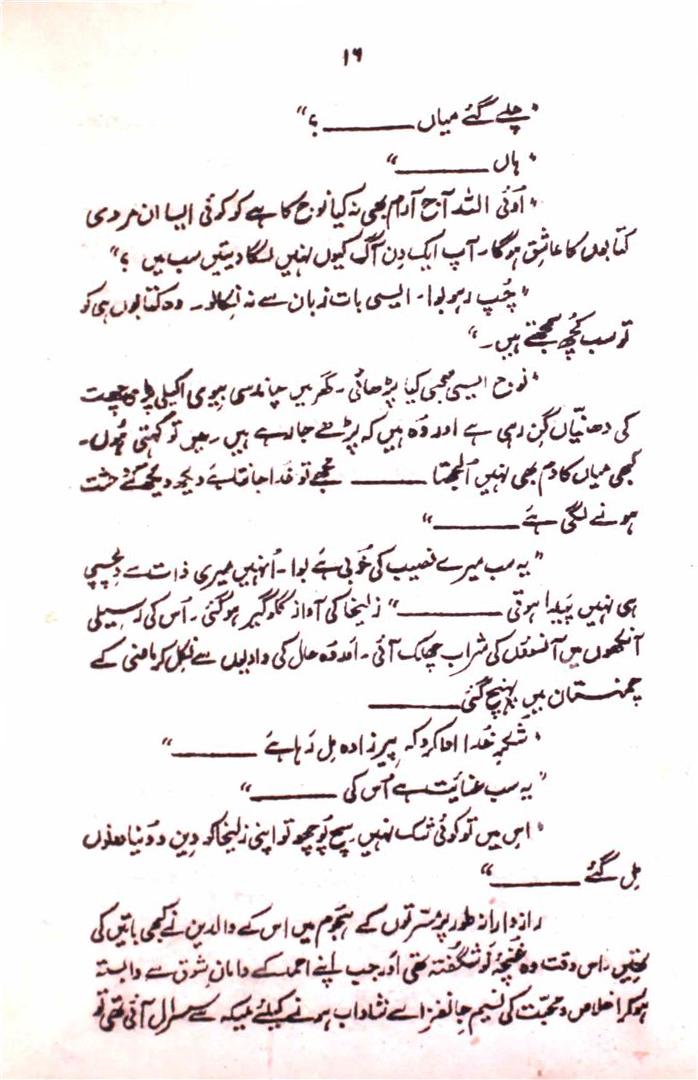 ۱۶
"چلے گئے میاں ــــــــ ؟"
"ہاں ــــــــ"
"اوئی اللہ آج آرام بھی نہ کیا نوج کاہے کو کوئی ایسا ان مردی
کتابوں کا عاشق ہوگا۔ آپ ایک دن آگ کیوں نہیں لگا دیتیں سب میں ؟"
"چُپ رہو بوا۔ ایسی بات زبان سے نہ نکالو۔ وہ کتابوں ہی کو
تو سب کُچھ سمجھتے ہیں۔"
"نوج ایسی بھی کیا پڑھائی۔ گھر میں چاند سی بیوی اکیلی پڑی چھت
کی دھنیّاں گِن رہی ہے اور وُہ ہیں کہ پڑھے جا رہے ہیں۔ میں تو کہتی ہُوں۔
کبھی میاں کا دَم بھی نہیں اُلجھتا ــــــــ مجھے تو خُدا جانتا ہے دیکھ دیکھ کے وحشت
ہونے لگی ہَے ــــــــ"
"یہ سب میرے نصیب کی خُوبی ہَے بوا۔ اُنہیں میری ذات سے دلچسپی
ہی نہیں پَیدا ہوتی ــــــــ" زلیخا کی آواز گلوگیر ہو گئی۔ اُس کی رسیلی
آنکھوں میں آنسوؤں کی شراب چھلک آئی۔ اور وُہ حال کی وادیوں سے نِکل کر ماضی کے
چمنستان میں پہنچ گئی ــــــــ
"شُکرِ خُدا ادا کرو کہ پیر زادہ مِل رَہا ہَے ــــــــ"
"یہ سب عنایَت ہے اُس کی ــــــــ"
"اِس میں تو کوئی شک نہیں۔ سچ پُوچھو تو اپنی زلیخا کو دِین و دُنیا دونوں
مِل گئے ــــــــ"
رازدارانہ طور پر مسّرتوں کے ہجَوم میں اس کے والدین نے کبھی باتیں کی
تھِیں۔ اس وقت وہ غُنچۂ نَو شگُفتہ تھی اور جب اپنے احمد کے دامانِ شوق سے وابستہ
ہو کر اخلاص و محبّت کی نسیمِ جانفزا سے شاداب ہونے کیلئے میکہ سے سسرال آئی تھی تو